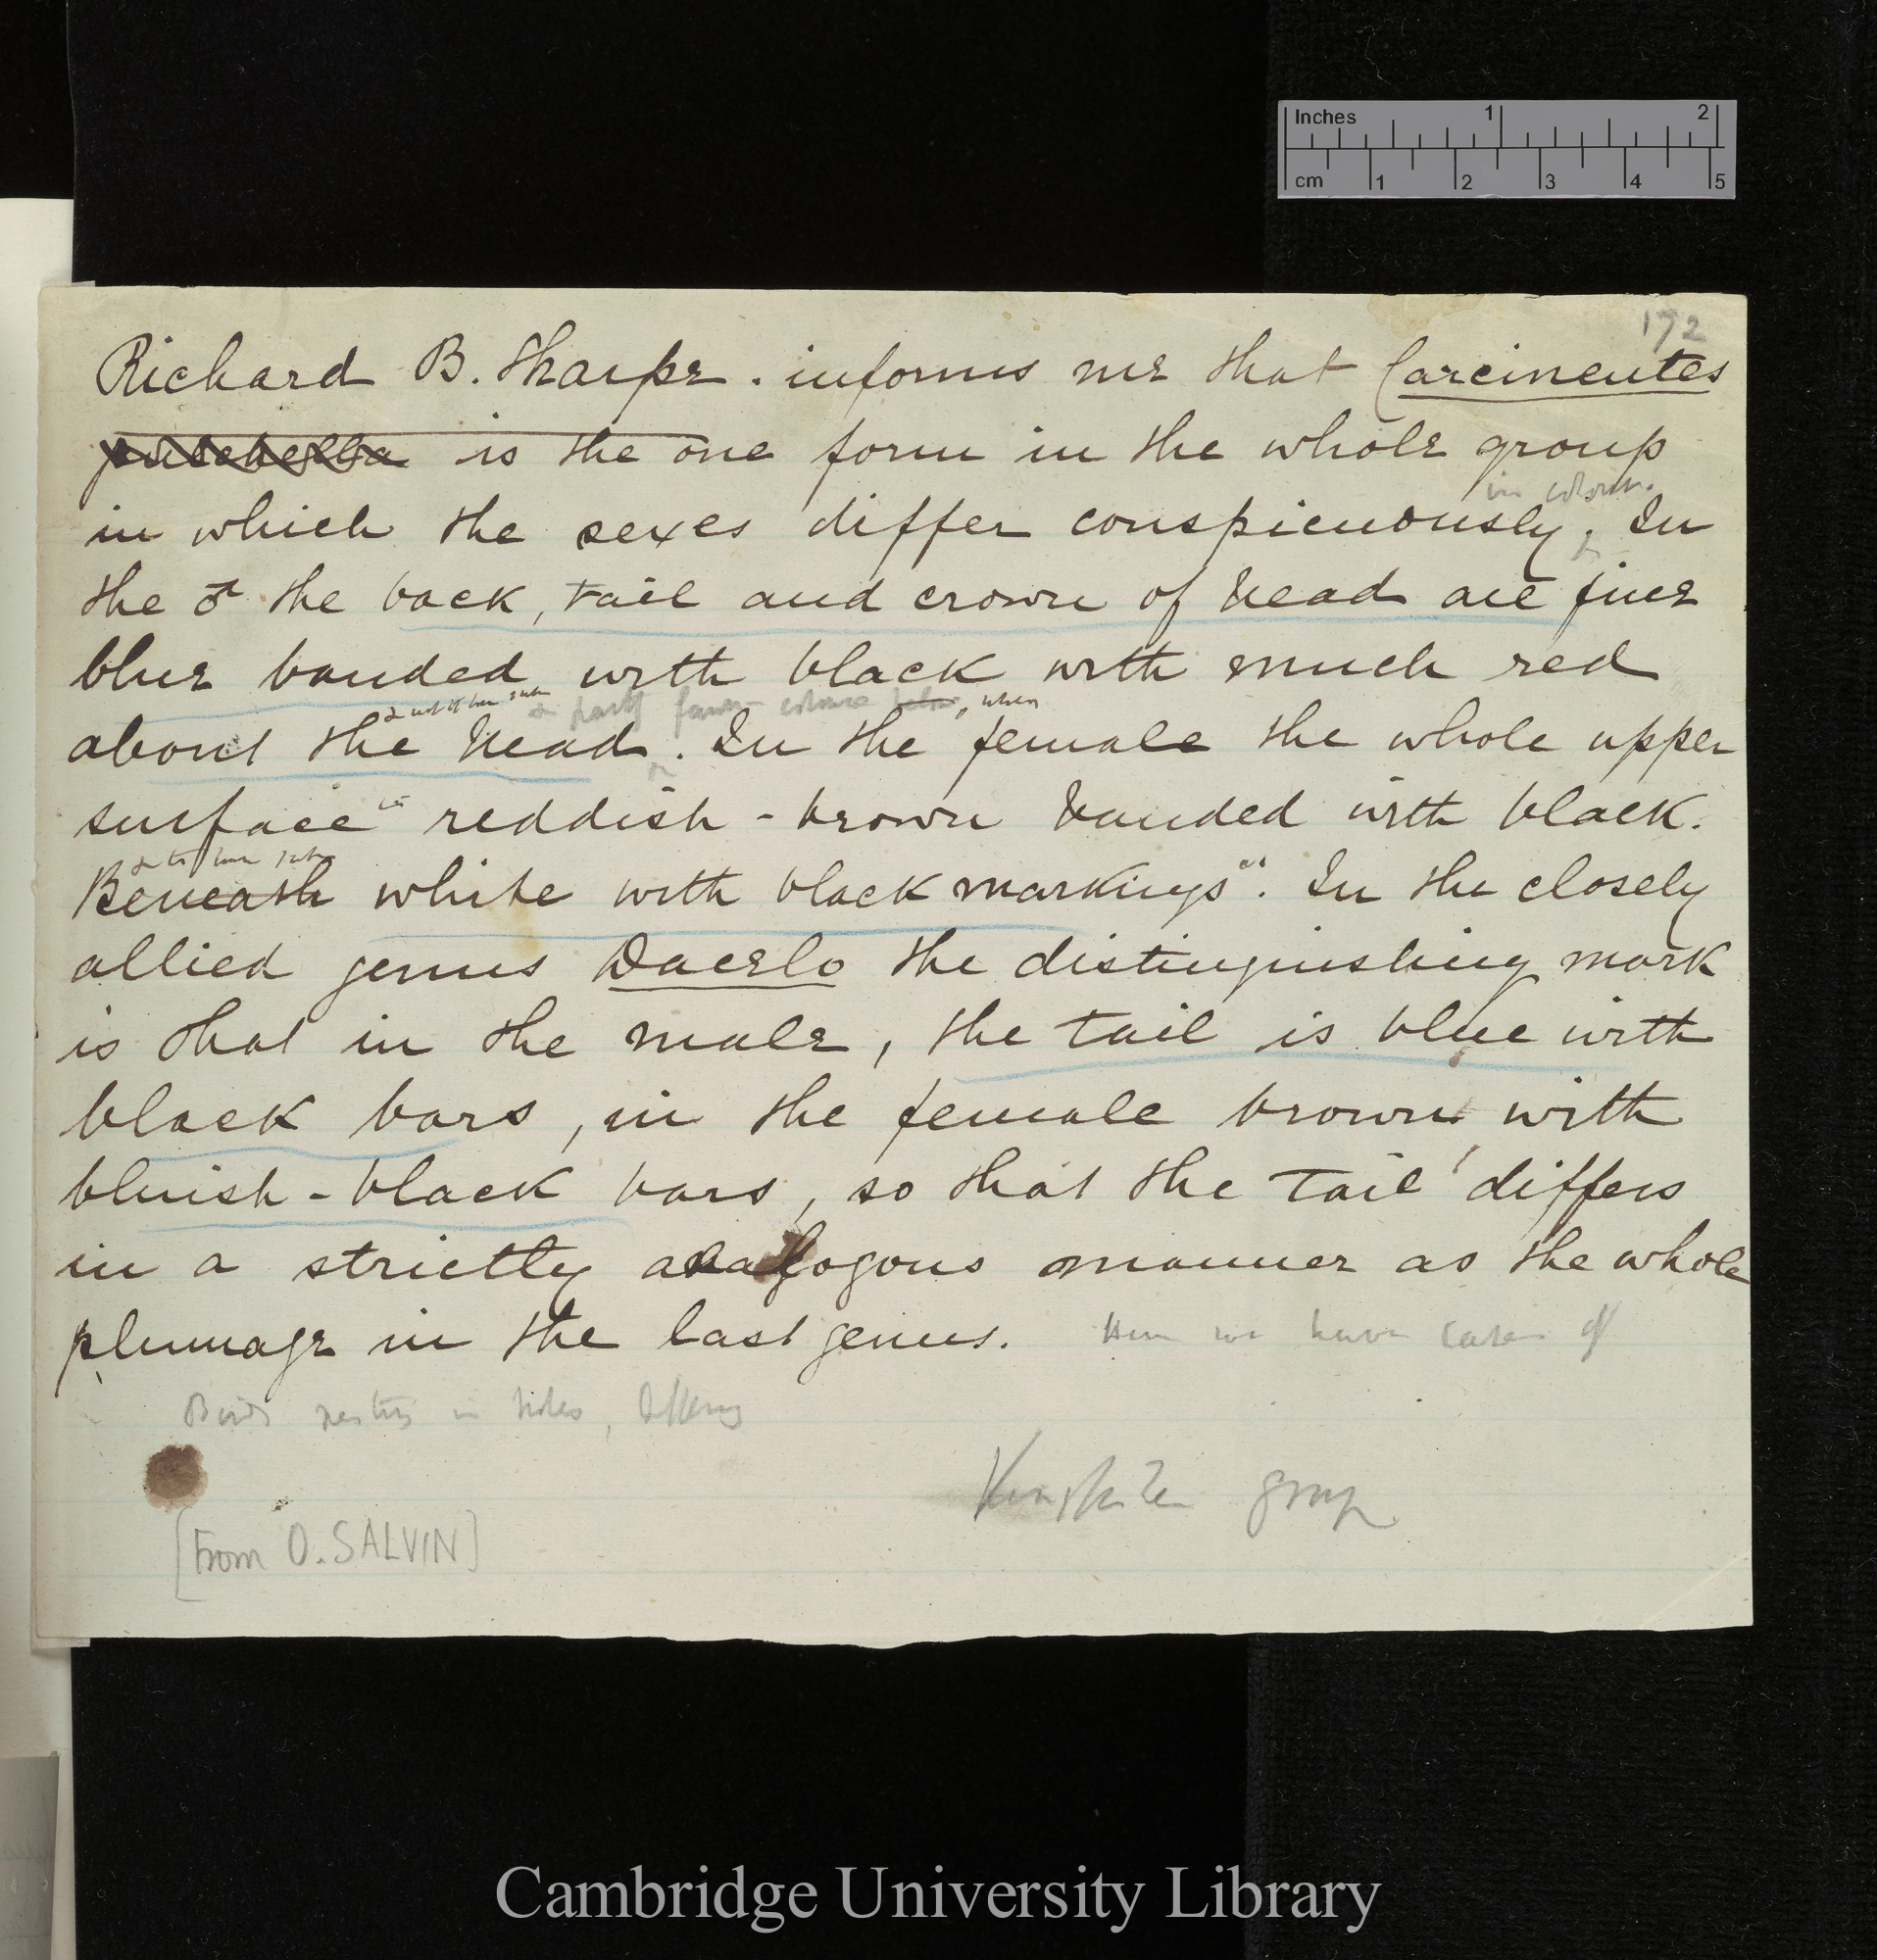 Inches 1 2
cm 1 2 3 4 5
172
Richard B. Sharpe. informs me that Carcineutes
pulchella is the one form in the whole group
in colour.
in which the sexes differ conspicuously. In
the ♂ the back, tail and crown of head are fine
blue banded with black with much red
& partly fawn colour below, when
about the head. In the female the whole upper
surface is reddish-brown banded with black.
Beneath white with black markings". In the closely
allied genus Dacelo the distinguishing mark
is that in the male, the tail is blue with
black bars, in the female brown with
bluish-black bars, so that the tail differs
in a strictly analogous manner as the whole
plumage in the last genus. Here we have cases of
Birds nesting in holes, differing
Kingfisher group
[From O. SALVIN]
Cambridge University Library